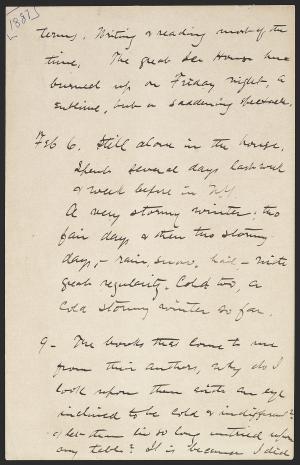 [1887]
terms. Writing & reading most of the
time. The great Ice House here
burned up on Friday night, a
sublime, but a saddening spectacle.
Feb 6. Still alone in the house.
Spent several days last week
& week before in N.Y.
A very stormy winter; two
fair days & then two stormy
days, - rain, snow, hail - with
great regularity. Cold too, a
cold stormy winter so far.
9 - The books that come to me
from their authors, why do I
look upon them with an eye
inclined to be cold & indifferent?
& let them lie so long untried upon
my table? It is because I did